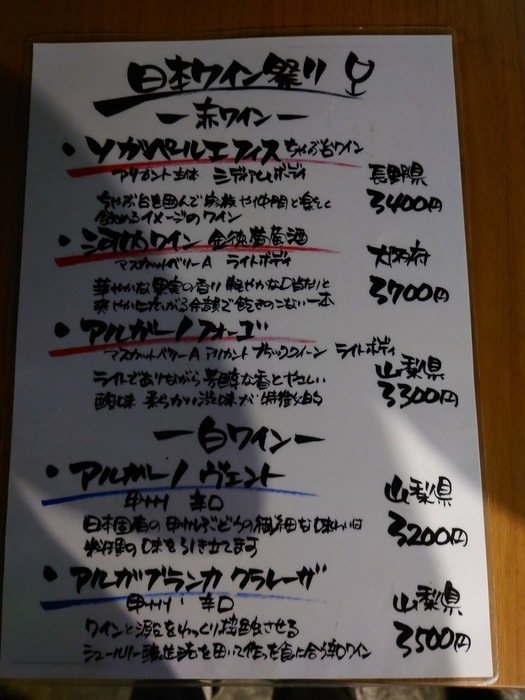 日本ワイン祭り
ー赤ワインー
・ソガペールエフィス ちゃぶ台ワイン
アリカント主体 ミディアムボディ 長野県
ちゃぶ台を囲んで家族や仲間と楽しく 3400円
飲めるイメージのワイン
・河内ワイン 金徳葡萄酒
マスカットベリーA ライトボディ 大阪府
華やかな果実の香り 軽やかな口当たりと 3700円
爽やかに広がる余韻で飽きのこない一本
・アルガーノフォーゴ
マスカットベリーA アリカント ブラッククイーン ライトボディ
山梨県
ライトでありながら芳醇な香とやさしい 3300円
酸味 柔らかい渋味が特徴的
ー白ワインー
・アルガーノ ヴェント
甲州 辛口 山梨県
日本固有の甲州ぶどうの繊細な味わいは 3200円
料理の味を引き立てます
・アルガブランカ クラレーザ
甲州 辛口 山梨県
ワインと澱をゆっくり接触させる 3500円
シュールリー醸造法を用いて作った食に合う辛口ワイン